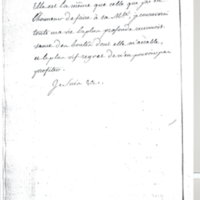 Elle est la même que celle que j'ai eu
l'honneur de faire à sa M.té, je conserverai
toute ma vie la plus profonde reconnois-
sance des bontés dont elle m'accable,
et le plus vif regret de n'en pouvoir pas
profiter.
Je suis &c.